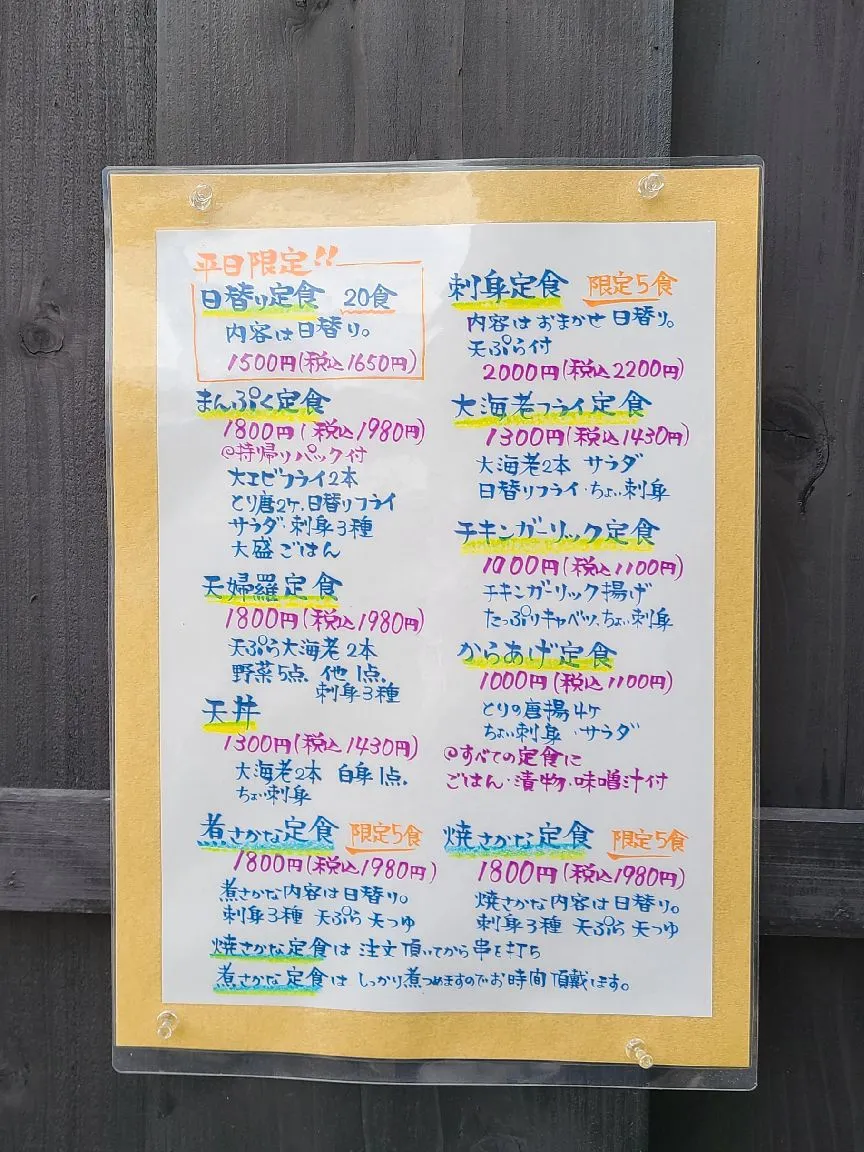 平日限定!!
日替り定食 20食
内容は日替り。
1500円(税込1650円)
まんぷく定食
1800円(税込1980円)
@持帰りパック付
大エビフライ2本
とり唐2ヶ.日替りフライ
サラダ・刺身3種
大盛ごはん
天婦羅定食
1800円(税込1980円)
天ぷら大海老2本
野菜5点 他1点.
刺身3種
天丼
1300円(税込1430円)
大海老2本 白身1点.
ちょい刺身
煮さかな定食 限定5食
1800円(税込1980円)
煮さかな内容は日替り。
刺身3種 天ぷら 天つゆ
刺身定食 限定5食
内容はおまかせ日替り。
天ぷら付
2000円(税込2200円)
大海老フライ定食
1300円(税込1430円)
大海老2本 サラダ
日替りフライ・ちょい刺身
チキンガーリック定食
1000円(税込1100円)
チキンガーリック揚げ
たっぷりキャベツ、ちょい刺身
からあげ定食
1000円(税込1100円)
とりの唐揚4ヶ
ちょい刺身・サラダ
@すべての定食に
ごはん・漬物・味噌汁付
焼さかな定食 限定5食
1800円(税込1980円)
焼さかな内容は日替り。
刺身3種 天ぷら 天つゆ
焼さかな定食は 注文頂いてから串を打ち
煮さかな定食は しっかり煮つめますのでお時間頂戴します。